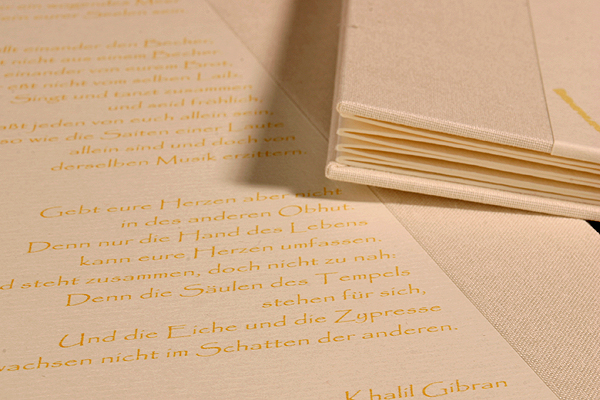 ein wogendes Meer
eurer Seelen sein.
einander den Becher,
nicht aus einem Becher
einander von eurem Brot,
eßt nicht vom selben Laib.
Singt und tanzt zusammen
und seid fröhlich,
aßt jeden von euch allein sein,
so wie die Saiten einer Laute
allein sind und doch von
derselben Musik erzittern.
Gebt eure Herzen aber nicht
in des anderen Obhut.
Denn nur die Hand des Lebens
kann eure Herzen umfassen.
d steht zusammen, doch nicht zu nah:
Denn die Säulen des Tempels
stehen für sich,
Und die Eiche und die Zypresse
wachsen nicht im Schatten der anderen.
Khalil Gibran